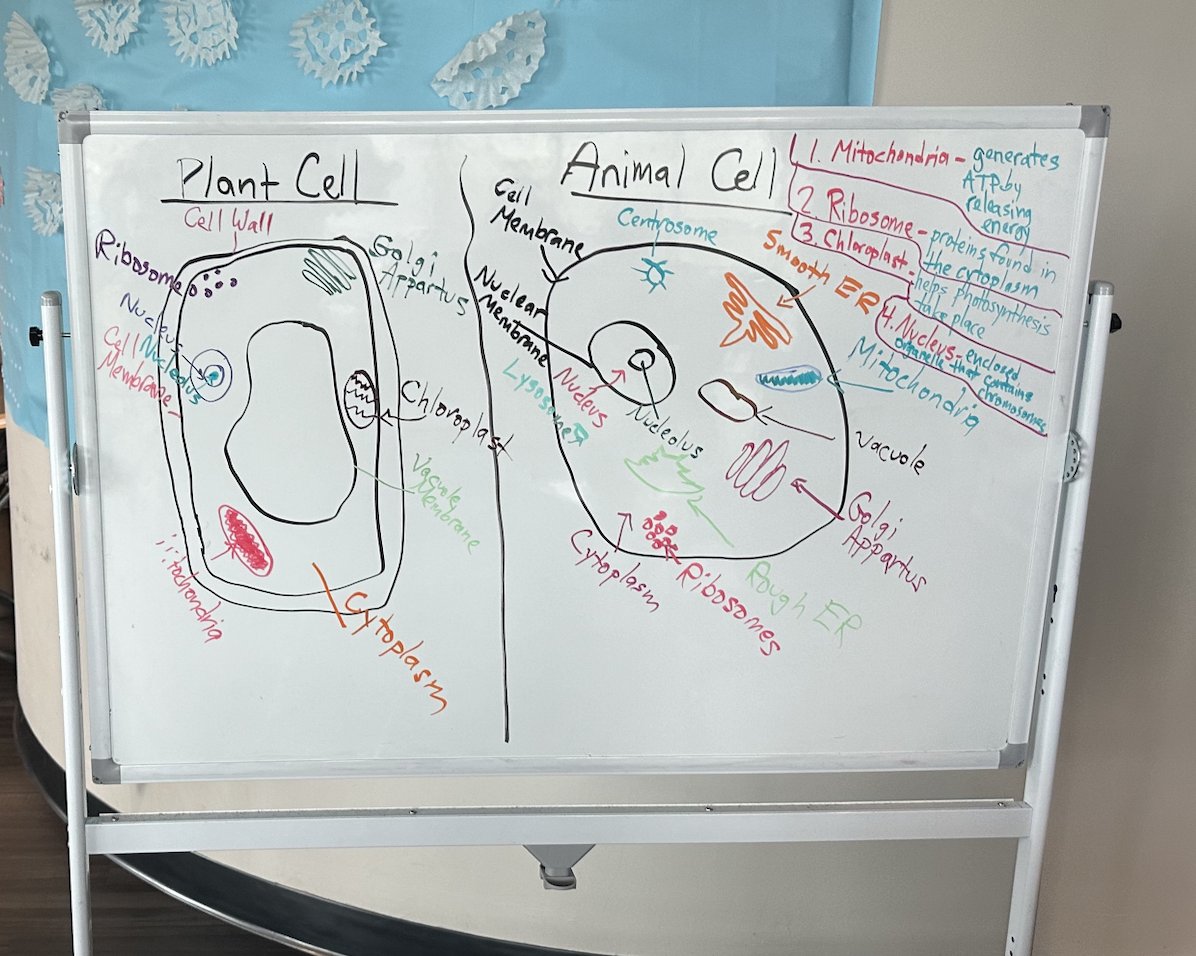 Plant Cell
Cell Wall
Ribosome
Golgi
Appartus
Nucleus
Nucleolus
Cell
Membrane
Chloroplast
Vacuole
Membrane
mitochondria
Cytoplasm
Animal Cell
Cell
Membrane
Centrosome
Smooth ER
Nuclear
Membrane
Lysosome
Nucleus
Nucleolus
Mitochondria
Vacuole
Golgi
Appartus
Cytoplasm
Ribosomes
Rough ER
1. Mitochondria - generates
ATP by
releasing
energy
2 Ribosome - proteins found in
the cytoplasm
3. Chloroplast - helps photosynthesis
take place
4. Nucleus - enclosed
organelle that contains
chromosomes